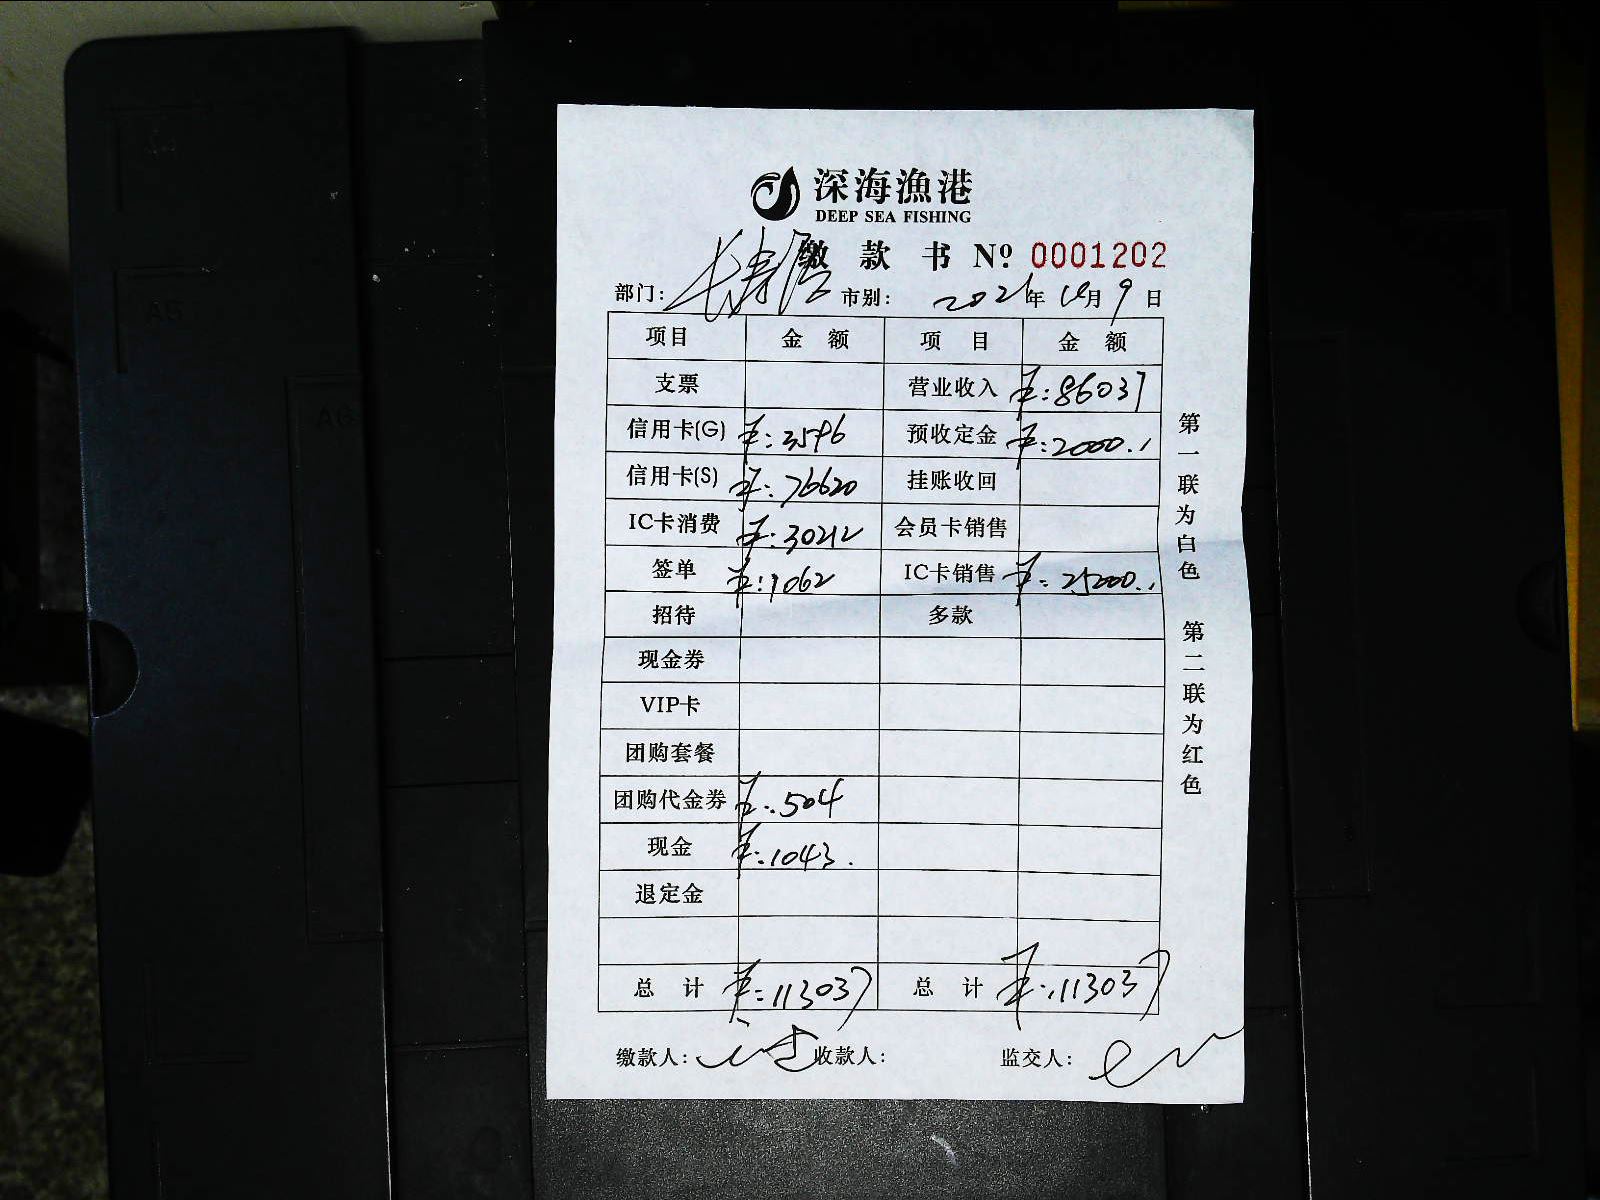 深海漁港
DEEP SEA FISHING
缴款书 Nº 0001202
部门: 长寿 市别: 2021年10月9日
项目 金额 项目 金额
支票 营业收入 ¥:86037
信用卡(G) ¥:3596 预收定金 ¥:2000.
信用卡(S) ¥:76620 挂账收回
IC卡消费 ¥:30212 会员卡销售
签单 ¥:1062 IC卡销售 ¥:25000.
招待 多款
现金券
VIP卡
团购套餐
团购代金券 ¥:504
现金 ¥:1043.
退定金
总计 ¥:113037 总计 ¥:113037
缴款人: 收款人: 监交人:
第一联为白色 第二联为红色